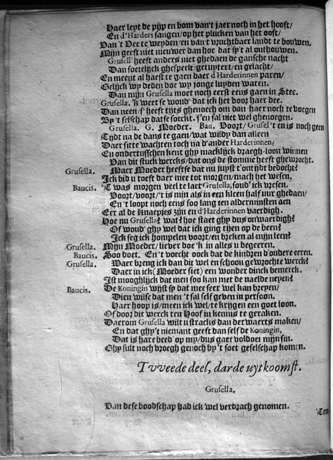 Haer leyt de pijp en bom van't jaer noch in het hooft,
En d'Harders sangen, op het plucken van het ooft,
Dan 't Vee te weyden, en van 't vruchtbaer landt te bouwen,
Mijn geest niet nieuwer dan hoe dat sy't al onthouwen.
Grusell' heeft anders niet ghedaen de gansche nacht
Dan soetelijck ghespeelt, getuytert, en gelacht;
En meent al haest te gaen daer d'Harderinnen paren,
Gelijck wy deden doe wy jonge luyden waren.
Dan mijn Grusella moet noch eerst eens gaen in Stee.
Grusella. Ick weet se woud' dat ick her voor haer dee.
Dan neen s' heeft thijs ghenoech om dat haer noch te voegen
By 't geselschap datse soeckt, s'en sal niet wel ghenoegen.
Grusella. G. Moeder. Bau. Voort, Grusel' ten is noch geen
Tydt na de dans te gaen/ wat wilby dan alleen
Daer sitte wachten noch na d'ander Harderinnen;
En ondertusschen kent ghy macklijck d'aegh-loon winnen
Van dit stuck werrcks, dat ons de stomme heeft ghewrocht.
Grusella. Maer Moeder heeftse dat nu juyst t'ontijdt bedocht?
Ick bid u toeft daer mee tot morgen, mach het wesen,
Baucis. 'T was morgen wel te laet Grusella, soud' ick vresen.
Voort, voort, 't is min als in een kleen half uur ghedaen/
En 't loopt noch eens soo lang ten alderminsten aen
Eer al de knaepjes zijn en d'Harderinnen vaerdigh.
Hoe nu Grusella? wat? hoe staet ghy dus onwaerdigh?
Of woud' ghy wel dat ick ging the op de bern?
Ick seg ick hompelen voort, en breken al mijn leen?
Grusella. Mijn Moeder, liever doe 'k in alles u begeeren.
Baucis. Soo doet. En 't voecht ook dat de kindren d'ouders eeren.
Grusella. Waer breng ick dan dit wel en schoon gewrochte werrck?
Daer in ick (Moeder siet) een wonder dinck bemerck.
Ist mooghlijck dat men soo kan met de naelde neyen?
Baucis. De Koningin wyst se dat mee seer wel kan breyen/
Dien wilse dat men 't sal self geven in persoon.
Haer hoop is, meen ick wel te krygen een goet loon.
Of door dit werck ten Hoof in kennis te geraken.
Daerom Grusella wilt u stracks dan derwaerts maken/
En dat ghy't niemant geeft dan self de Koningin,
Dat is haer beed' op my, dus gaet voldoet mijn sin.
Ghy sult noch vroegh genoch by 't soet geselschap komen.
Tvveede deel, darde uytkoomst.
Grusella.
Van dese boodschap had ick wel verdrach genomen.